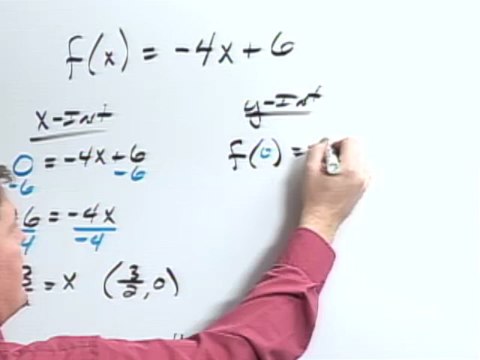 f(x) = -4x+6
x-Int
0 = -4x+6
-6 -6
6 = -4x
4 -4
3 = x (3/2, 0)
y-Int
f(0) =